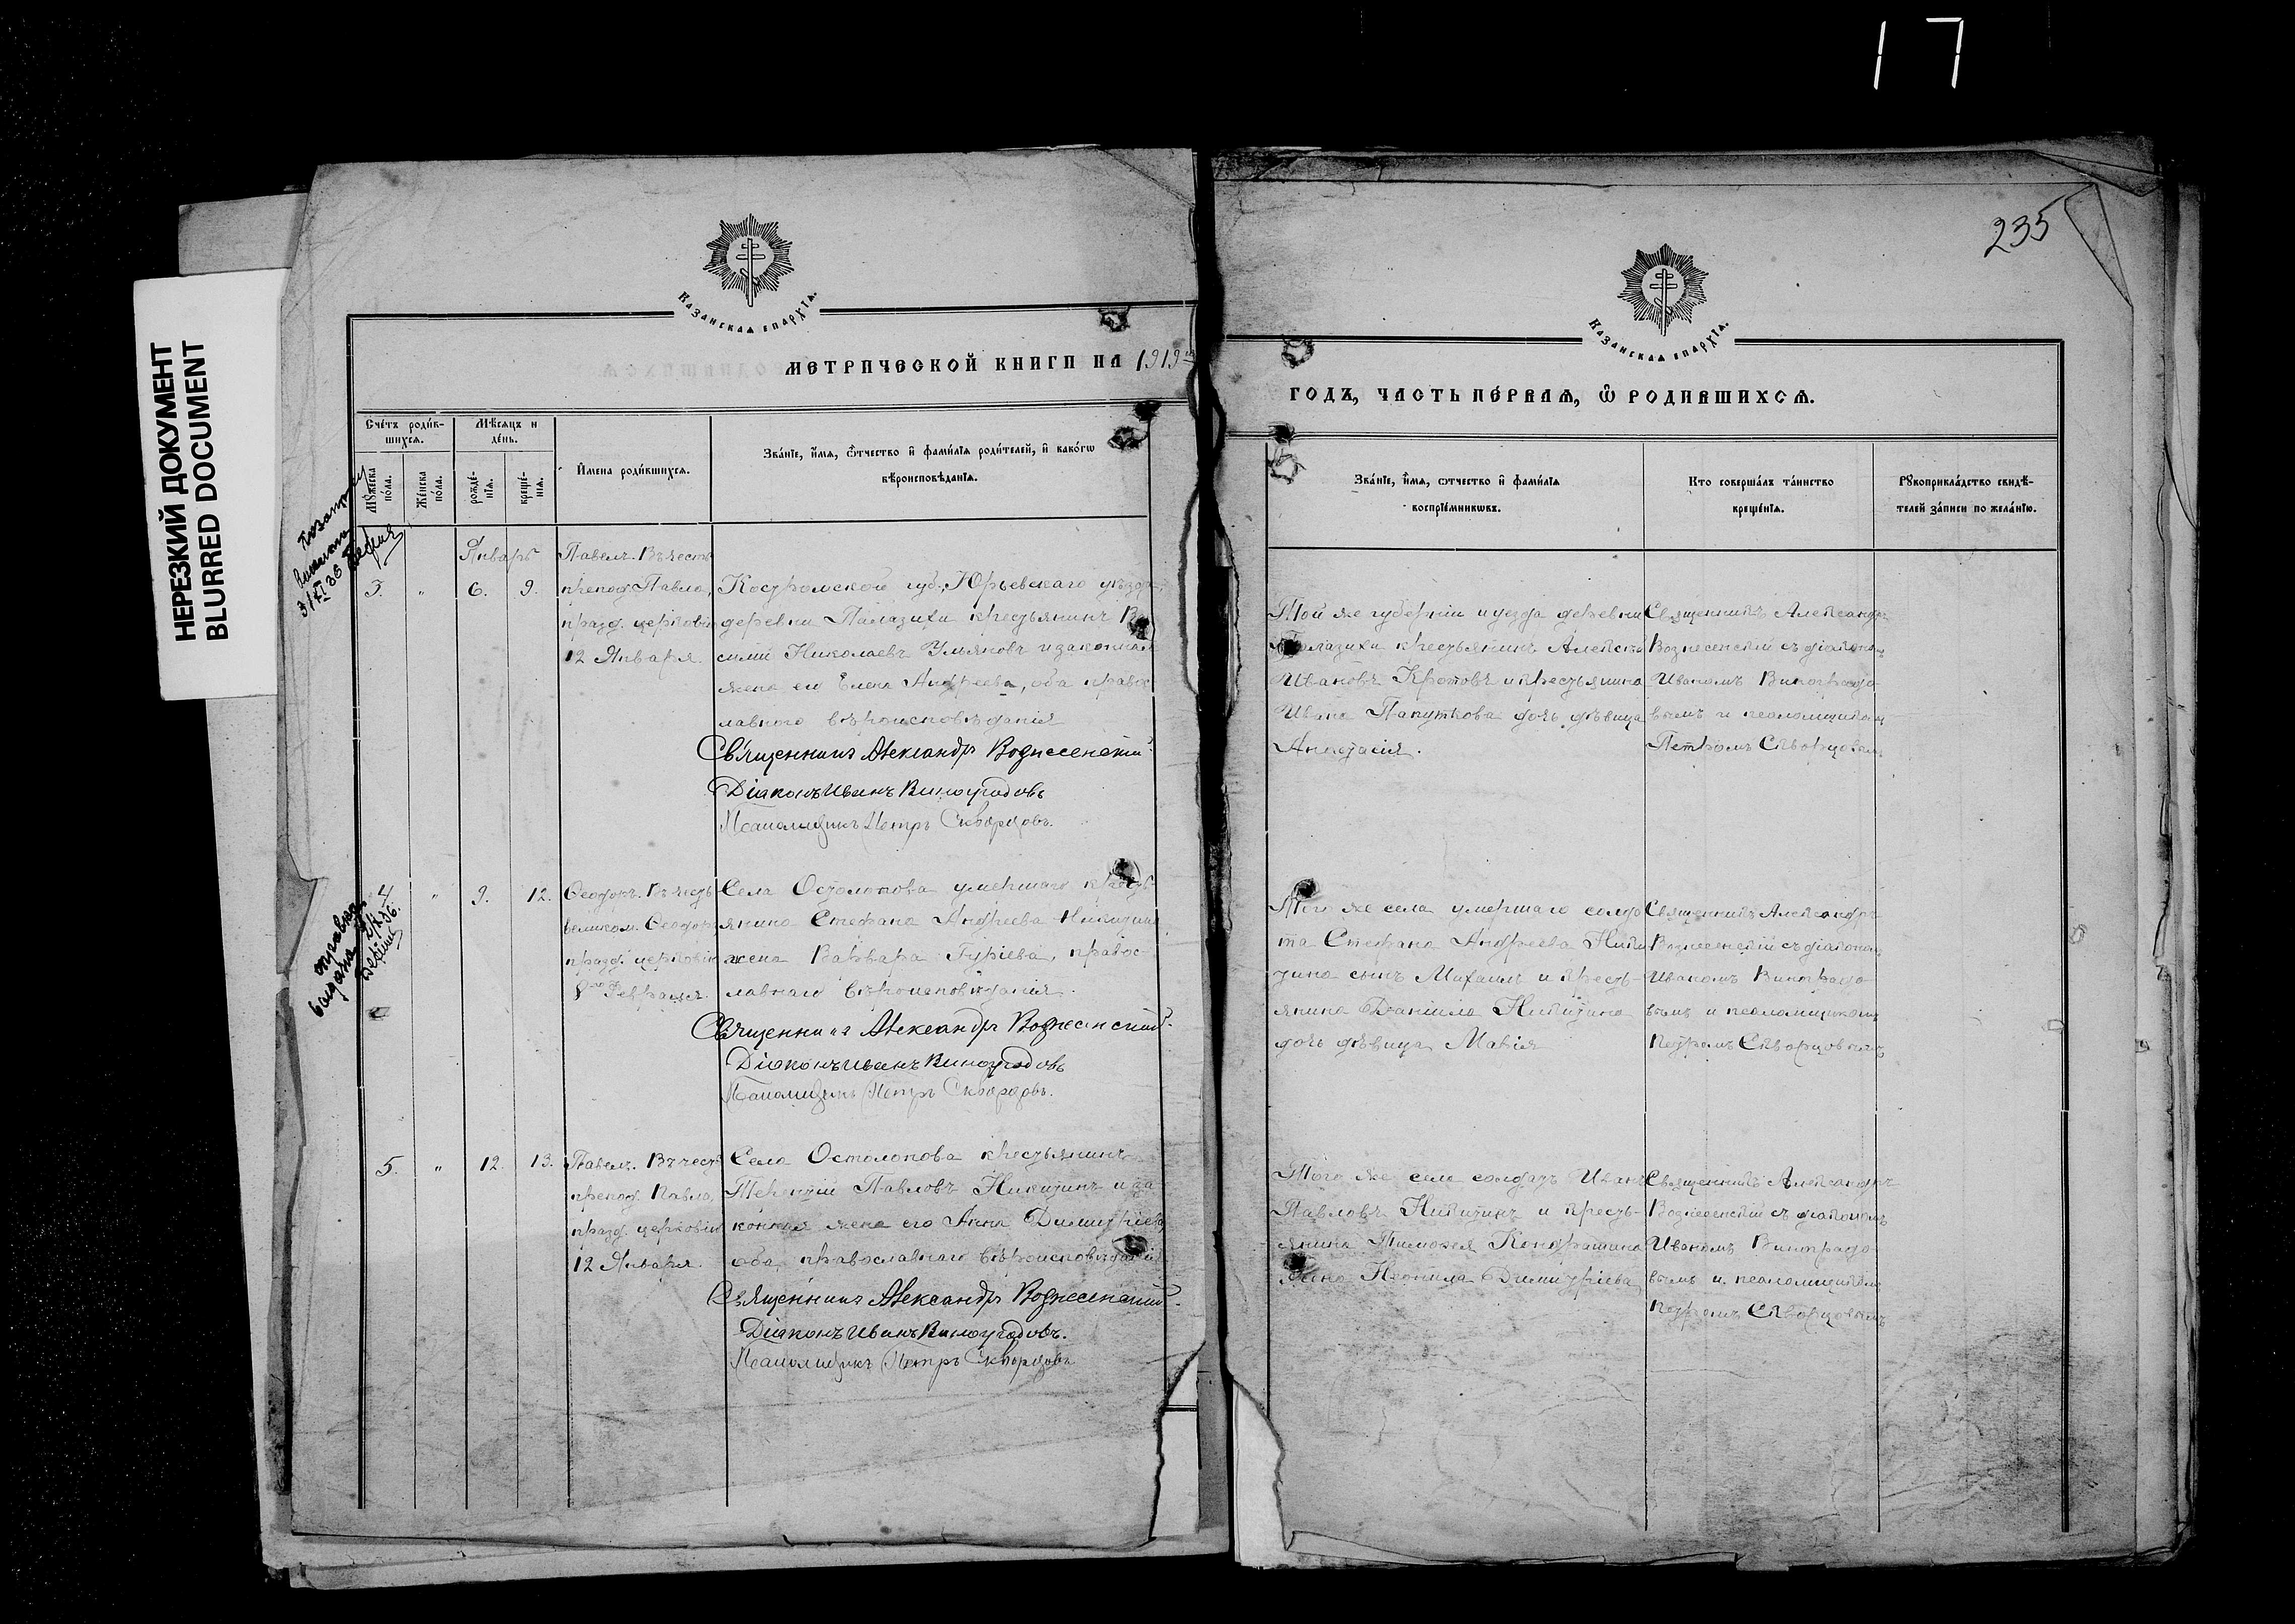 17
НЕРЕЗКИЙ ДОКУМЕНТ
BLURRED DOCUMENT
235
Казанская епархїа.
Казанская епархїа.
МЕТРИЧЕСКОЙ КНИГИ НА 1919
ГОДЪ, ЧАСТЬ ПЕ́РВАЯ, Ѡ РОДИВШИХСЯ.
Сче́тъ роди́в-
шихся.
Мѣ́сяцъ и
де́нь.
Мꙋ́жеска
по́ла.
Же́нска
по́ла.
рожде́-
нїя.
креще́-
нїя.
И҆мена роди́вшихся.
Зва́нїе, и҆́мя, ѻ҆́тчество и҆ фами́лїя роди́телей, и҆ како́гѡ
вѣроисповѣ́данїя.
Зва́нїе, и҆́мя, ѻтчество и҆ фами́лїя
воспрїе́мникѡвъ.
Кто соверша́лъ та́инство
креще́нїя.
Рꙋкоприкла́дство свидѣ́-
телей за́писи по жела́нїю.
Январь
3. " 6. 9.
Павелъ. Въ честь
препод. Павла,
празд. церковію
12 Января.
Костромской губ., Юрьевскаго уѣзда,
деревни Палазихи крестьянинъ
Николаевъ Умяковъ и законная
жена его Елена Андреева, оба правос-
лавнаго вѣроисповѣданія
Священникъ Александръ Вознесенскій.
Діаконъ Иванъ Виноградовъ
Псаломщикъ Петръ Скворцовъ.
Той же губерніи и уезда деревни
Палазихи крестьянинъ Алексѣй
Ивановъ Кротовъ и крестьянина
Ивана Папуткова дочь дѣвица
Анастасія.
Священникъ Александръ
Вознесенскій съ діакономъ
Иваномъ Виноградо-
вымъ и псаломщикомъ
Петромъ Скворцовымъ
справка
выдана
4 " 9. 12.
Ѳеодоръ. Въ честь
великом. Ѳеодора
празд. церковію
8го Февраля.
Села Остолопова умершаго кресть-
янина Стефана Андреева Никитина
жена Варвара Гуріева, правос-
лавнаго вѣроисповѣданія.
Священникъ Александръ Вознесенскій.
Діаконъ Иванъ Виноградовъ
Псаломщикъ Петръ Скворцовъ.
Того же села умершаго солда
та Стефана Андреева Ники
тина сынъ Михаилъ и кресть-
янина Даніила Никитина
дочь дѣвица Марія
Священникъ Александръ
Вознесенскій съ діакономъ
Иваномъ Виноградо-
вымъ и псаломщикомъ
Петромъ Скворцовымъ
5. " 12. 13.
Павелъ. Въ честь
препод. Павла,
празд. церковію
12 Января.
Села Остолопова крестьянинъ
Терентій Павловъ Никитинъ и за
конная жена его Анна Димитріева
оба, православнаго вѣроисповѣданія
Священникъ Александръ Вознесенскій.
Діаконъ Иванъ Виноградовъ.
Псаломщикъ Петръ Скворцовъ
Того же села солдатъ Иванъ
Павловъ Никитинъ и кресть-
янина Тимоѳея Кондрашина
жена Неонила Димитріева
Священникъ Александръ
Вознесенскій съ діакономъ
Иваномъ Виноградо-
вымъ и псаломщикомъ
Петромъ Скворцовымъ